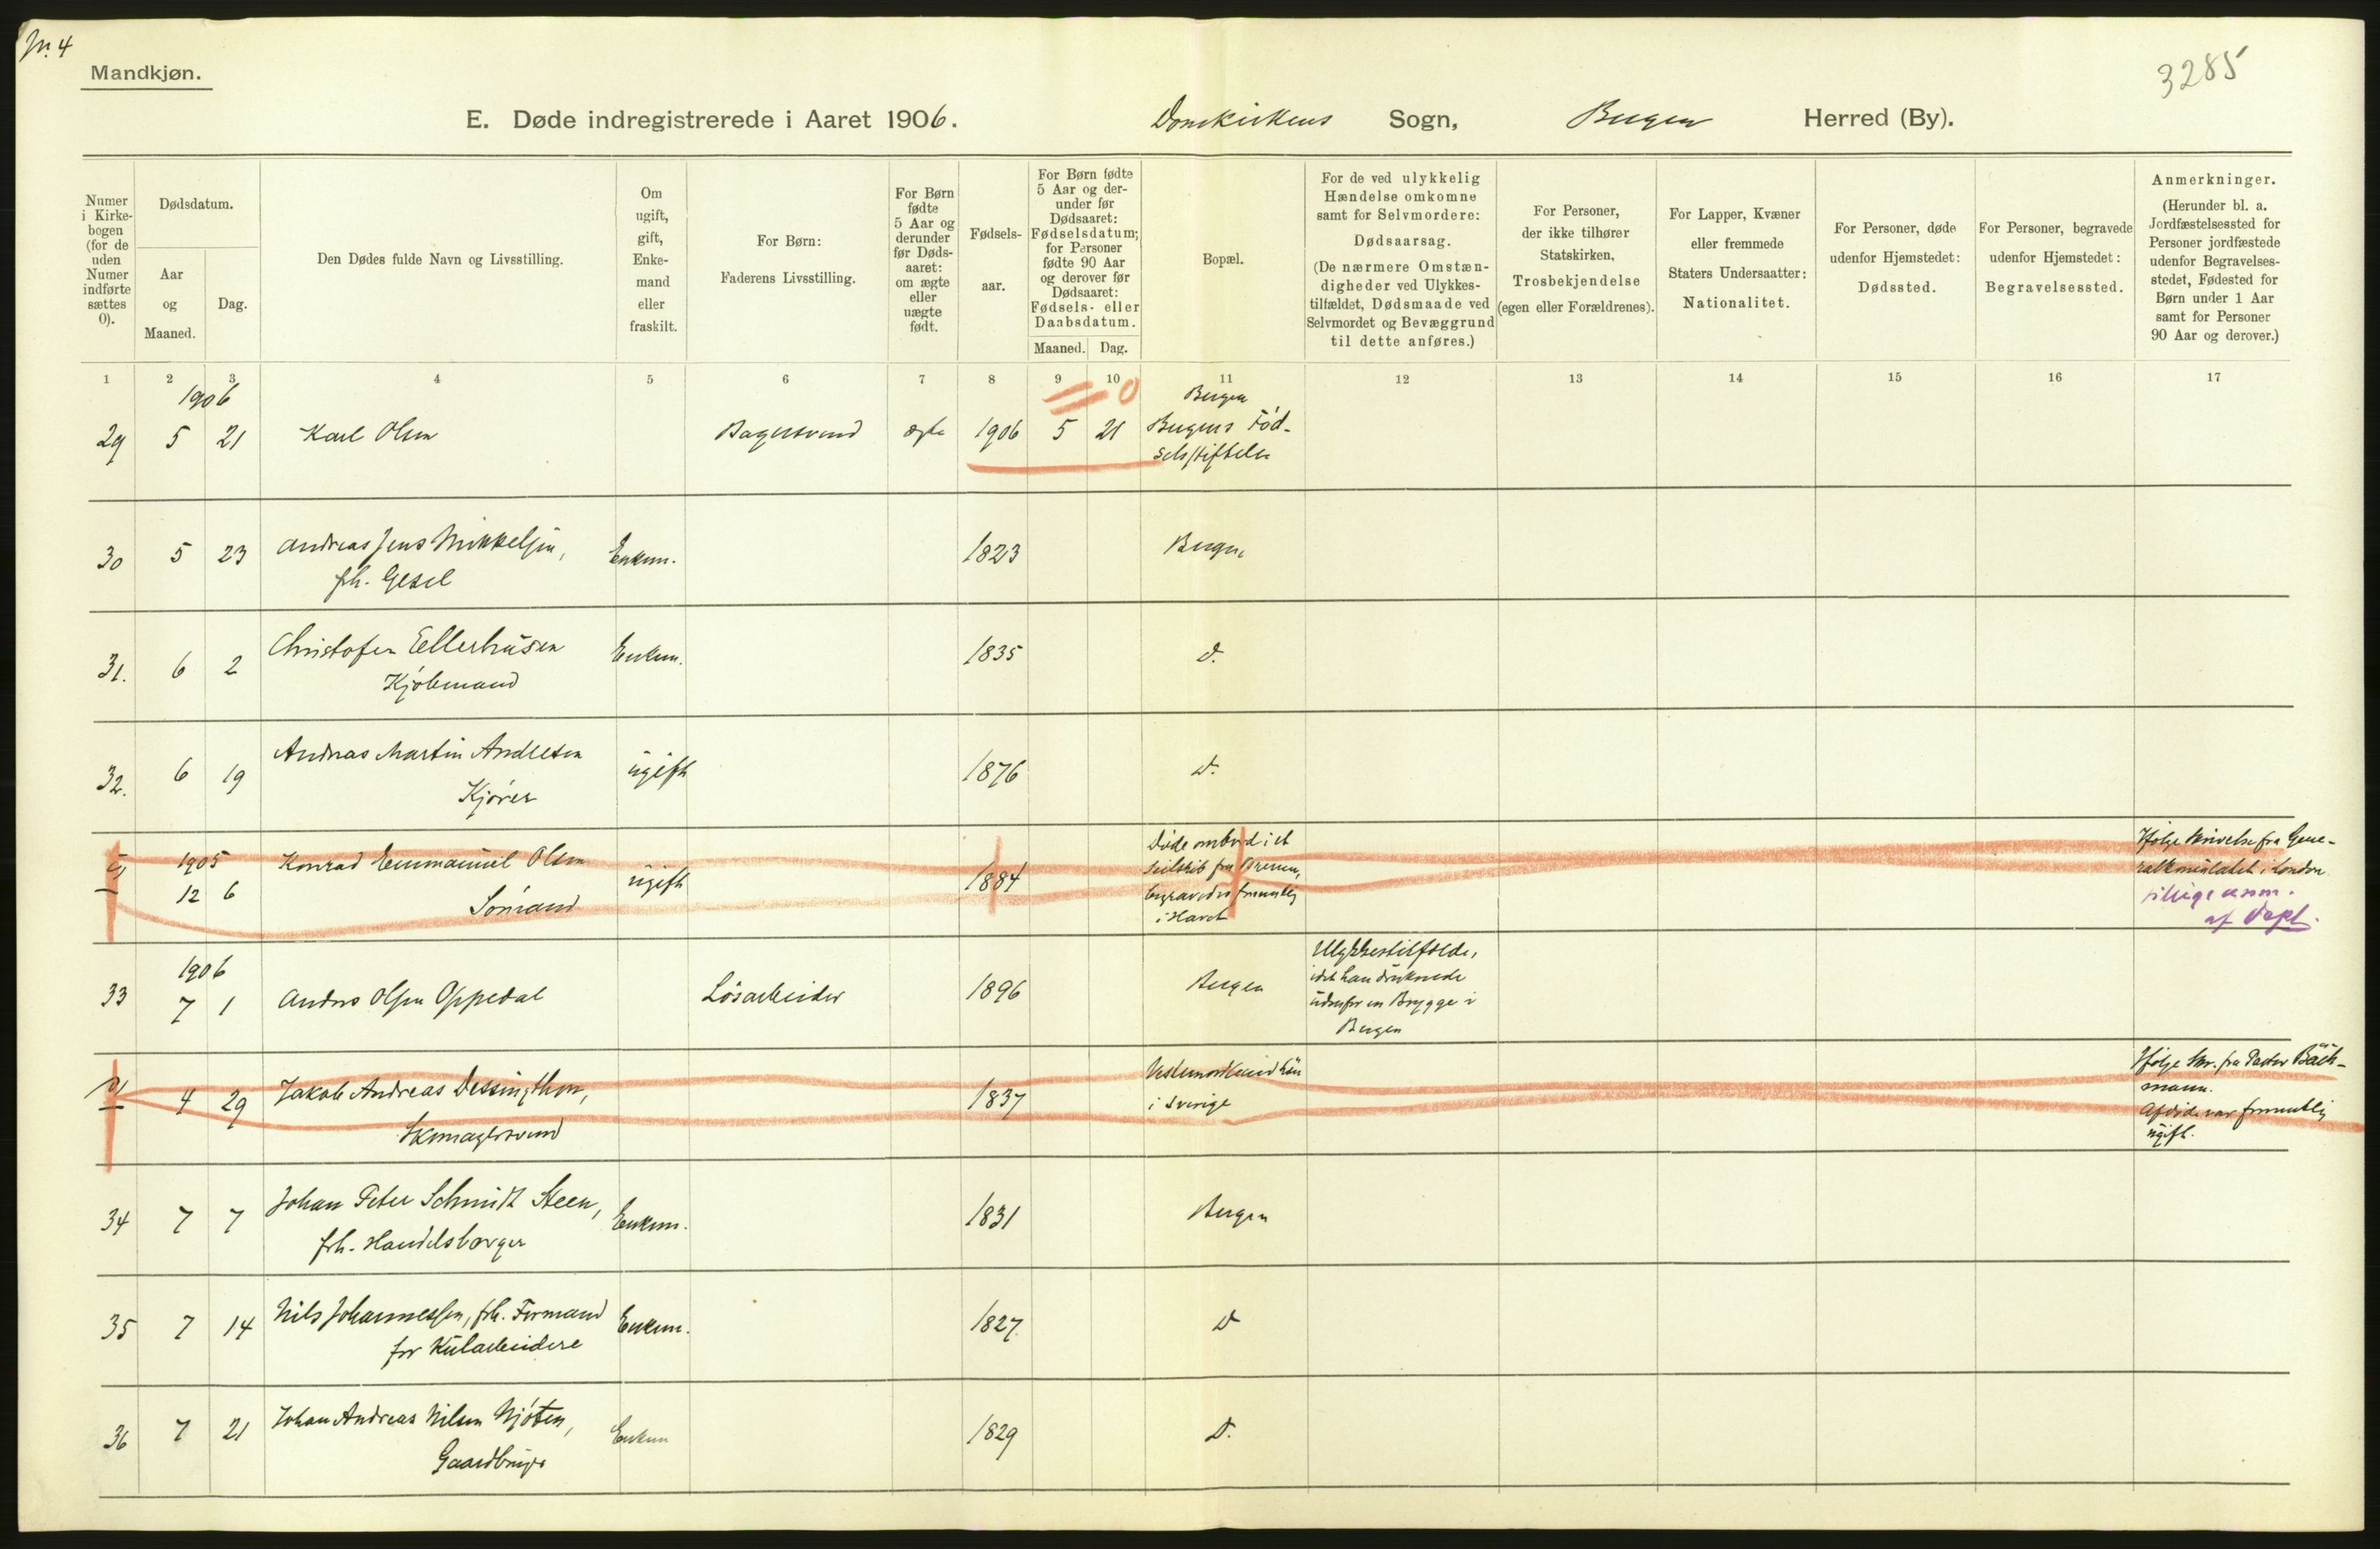 Nr. 4
3285
Mandkjøn.
E. Døde indregistrerede i Aaret 1906. Domkirkens Sogn, Bergen Herred (By).
Numer i Kirkebogen (for de uden Numer indførte sættes 0).
Dødsdatum.
Aar og Maaned.
Dag.
Den Dødes fulde Navn og Livsstilling.
Om ugift, gift, Enkemand eller fraskilt.
For Børn: Faderens Livsstilling.
For Børn fødte 5 Aar og derunder før Dødsaaret: om ægte eller uægte født.
Fødselsaar.
For Børn fødte 5 Aar og derunder før Dødsaaret: Fødselsdatum; for Personer fødte 90 Aar og derover før Dødsaaret: Fødsels- eller Daabsdatum.
Maaned. Dag.
Bopæl.
For de ved ulykkelig Hændelse omkomne samt for Selvmordere: Dødsaarsag. (De nærmere Omstændigheder ved Ulykkestilfældet, Dødsmaade ved Selvmordet og Bevæggrund til dette anføres.)
For Personer, der ikke tilhører Statskirken, Trosbekjendelse (egen eller Forældrenes).
For Lapper, Kvæner eller fremmede Staters Undersaatter: Nationalitet.
For Personer, døde udenfor Hjemstedet: Dødssted.
For Personer, begravede udenfor Hjemstedet: Begravelsessted.
Anmerkninger. (Herunder bl. a. Jordfæstelsessted for Personer jordfæstede udenfor Begravelsesstedet, Fødested for Børn under 1 Aar samt for Personer 90 Aar og derover.)
1 2 3 4 5 6 7 8 9 10 11 12 13 14 15 16 17
1906 0 Bergen
29 5 21 Karl Olsen Bagersvend ægte 1906 5 21 Bergens Fød-
selsstiftelse
30 5 23 Andreas Jens Mikkelsen, Enkem. 1823 Bergen
fh. Gesel
31. 6 2 Christofer Ellerhusen Enkem. 1835 d.
Kjøbmand
32. 6 19 Andreas Martin Andresen ugift 1876 d.
Kjører
1905 Konrad Emmanuel Olsen ugift 1884 Døde ombord i et
12 6 Sømand
Seilskib fra Bremen,
begravedes formentlig
i Havet
Ifølge Skrivelse fra Gene-
ralkonsulatet i London
af Dept.
1906
33 7 1 Anders Olsen Oppedal Løsarbeider 1896 Bergen Ulykkestilfælde,
idet han druknede
udenfor en Brygge i
Bergen
4 29 Jakob Andreas Dessingthon, 1837
Skomagersvend
i Sverige
Ifølge Skr. fra Pastor Bäck-
mann.
Afdøde var formentlig
ugift.
34 7 7 Johan Peter Schmidt Steen, Enkem. 1831 Bergen
frh. Handelsborger
35 7 14 Nils Johannessen, frh. Formand Enkem. 1827 d
for Kularbeidere
36 7 21 Johan Andreas Nilsen Njøten, Enkem 1829 d.
Gaardbruger